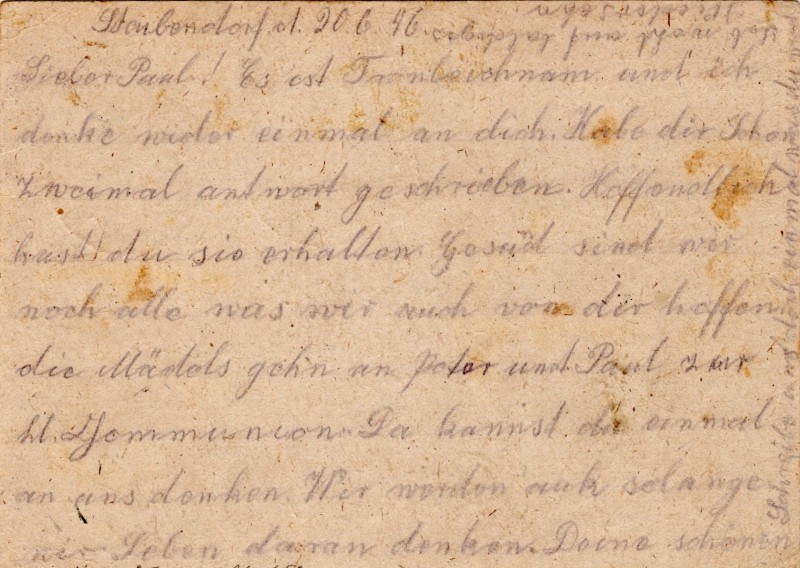 Staubendorf d. 20.6.46.
Lieber Paul! Es ist Fronleichnam und ich
denke wider einmal an dich. Habe dir Schon
zweimal antwort geschrieben. Hoffendlich
hast du sie erhalten. Gesud sind wir
noch alle was wir auch von dir hoffen.
die Mädels gehn an Peter und Paul zur
hl. Kommunion. Da kannst du einmal
an uns denken. Wir werden auch solange
wir Leben daran denken. Deine schönen
Schreibe auch einmal was du